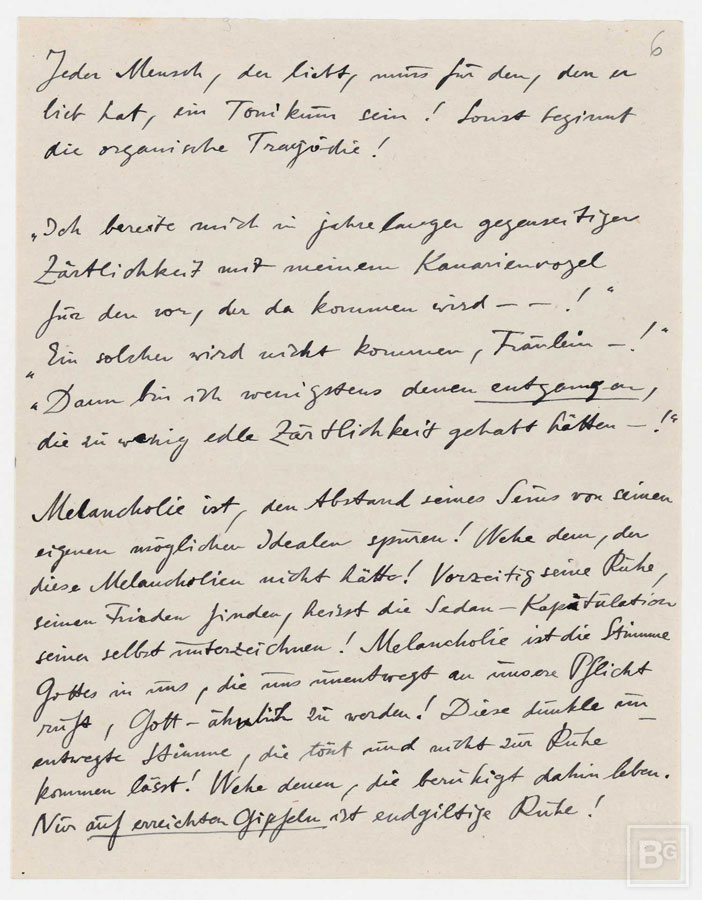 6
Jeder Mensch, der liebt, muss für den, den er
lieb hat, ein Tonikum sein! Sonst beginnt
die organische Tragödie!
„Ich bereite mich in jahrelanger gegenseitiger
Zärtlichkeit mit meinem Kanarienvogel
für den vor, der da kommen wird — — !“
„Ein solcher wird nicht kommen, Fräulein — !“
„Dann bin ich wenigstens denen entgangen,
die zu wenig edle Zärtlichkeit gehabt hätten — !“
Melancholie ist, den Abstand seines Seins von seinen
eigenen möglichen Idealen spüren! Wehe dem, der
diese Melancholien nicht hätte! Vorzeitig seine Ruhe,
seinen Frieden finden, heisst die Sedan-Kapitulation
seiner selbst unterzeichnen! Melancholie ist die Stimme
Gottes in uns, die uns unentwegt an unsere Pflicht
ruft, Gott-ähnlich zu werden! Diese dunkle un-
entwegte Stimme, die tönt und nicht zur Ruhe
kommen lässt! Wehe denen, die beruhigt dahin leben.
Nur auf erreichten Gipfeln ist endgiltige Ruhe!
BG